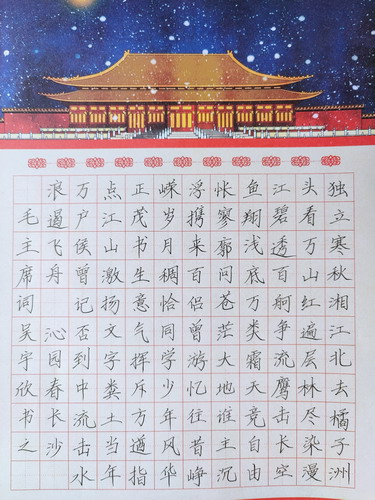 独立寒秋湘江北去橘子洲
头看万山红遍层林尽染漫
江碧透百舸争流鹰击长空
鱼翔浅底万类霜天竞自由
怅寥廓问苍茫大地谁主沉
浮携来百侣曾游忆往昔峥
嵘岁月稠恰同学少年风华
正茂书生意气挥斥方遒指
点江山激扬文字粪土当年
万户侯曾记否到中流击水
浪遏飞舟 沁园春长沙
毛主席词 吴宇欣书之